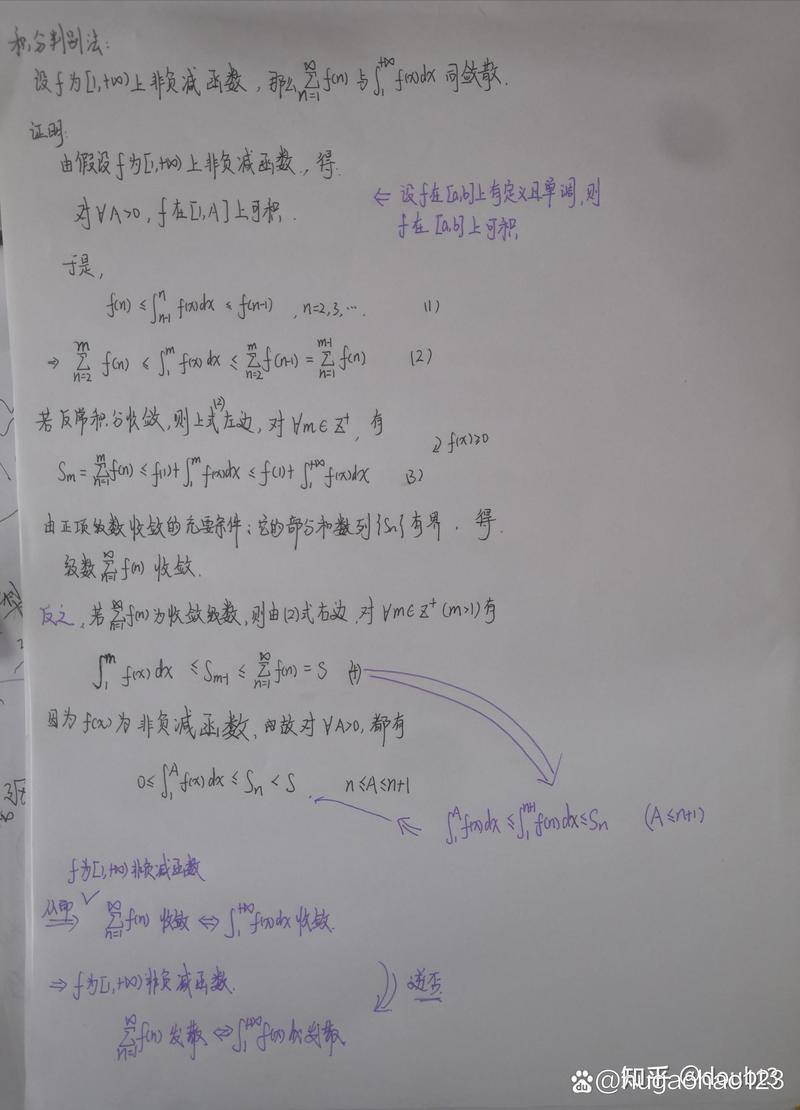 积分判别法:
设f为[1,+∞)上非负减函数, 那么 ∑_{n=1}^{∞} f(n) 与 ∫_1^{+∞} f(x)dx 同敛散.
证明:
由假设f为[1,+∞)上非负减函数, 得.
对∀A>0, f在[1,A]上可积.
⇐ 设f在[a,b]上有定义且单调,则
f在[a,b]上可积
于是,
f(n) ≤ ∫_{n-1}^{n} f(x)dx ≤ f(n-1) , n=2,3,…. (1)
⇒ ∑_{n=2}^{m} f(n) ≤ ∫_1^m f(x)dx ≤ ∑_{n=2}^{m} f(n-1) = ∑_{n=1}^{m-1} f(n) (2)
若反常积分收敛,则上式(2)左边, 对∀m∈Z⁺, 有
f(x)≥0
S_m = ∑_{n=1}^{m} f(n) ≤ f(1)+∫_1^m f(x)dx ≤ f(1)+∫_1^{+∞} f(x)dx (3)
由正项级数收敛的充要条件:它的部分和数列{Sn}有界. 得.
级数 ∑_{n=1}^{∞} f(n) 收敛.
反之, 若 ∑_{n=1}^{∞} f(n) 为收敛级数, 则由(2)式右边, 对∀m∈Z⁺(m>1)有
∫_1^m f(x)dx ≤ S_{m-1} ≤ ∑_{n=1}^{∞} f(n) = S (4)
因为f(x)为非负减函数, 故对∀A>0, 都有
0≤∫_1^A f(x)dx ≤ S_n < S. n≤A≤n+1
⇐ ∫_1^A f(x)dx ≤ ∫_1^{n+1} f(x)dx ≤ S_n (A≤n+1)
f为[1,+∞)非负减函数
从即⇒ ∑_{n=1}^{∞} f(n) 收敛 ⇔ ∫_1^{+∞} f(x)dx 收敛.
⇒ f为[1,+∞)非负减函数.
逆否
∑_{n=1}^{∞} f(n) 发散 ⇔ ∫_1^{+∞} f(x)dx 发散
知乎 @doub123
@hugaohao123